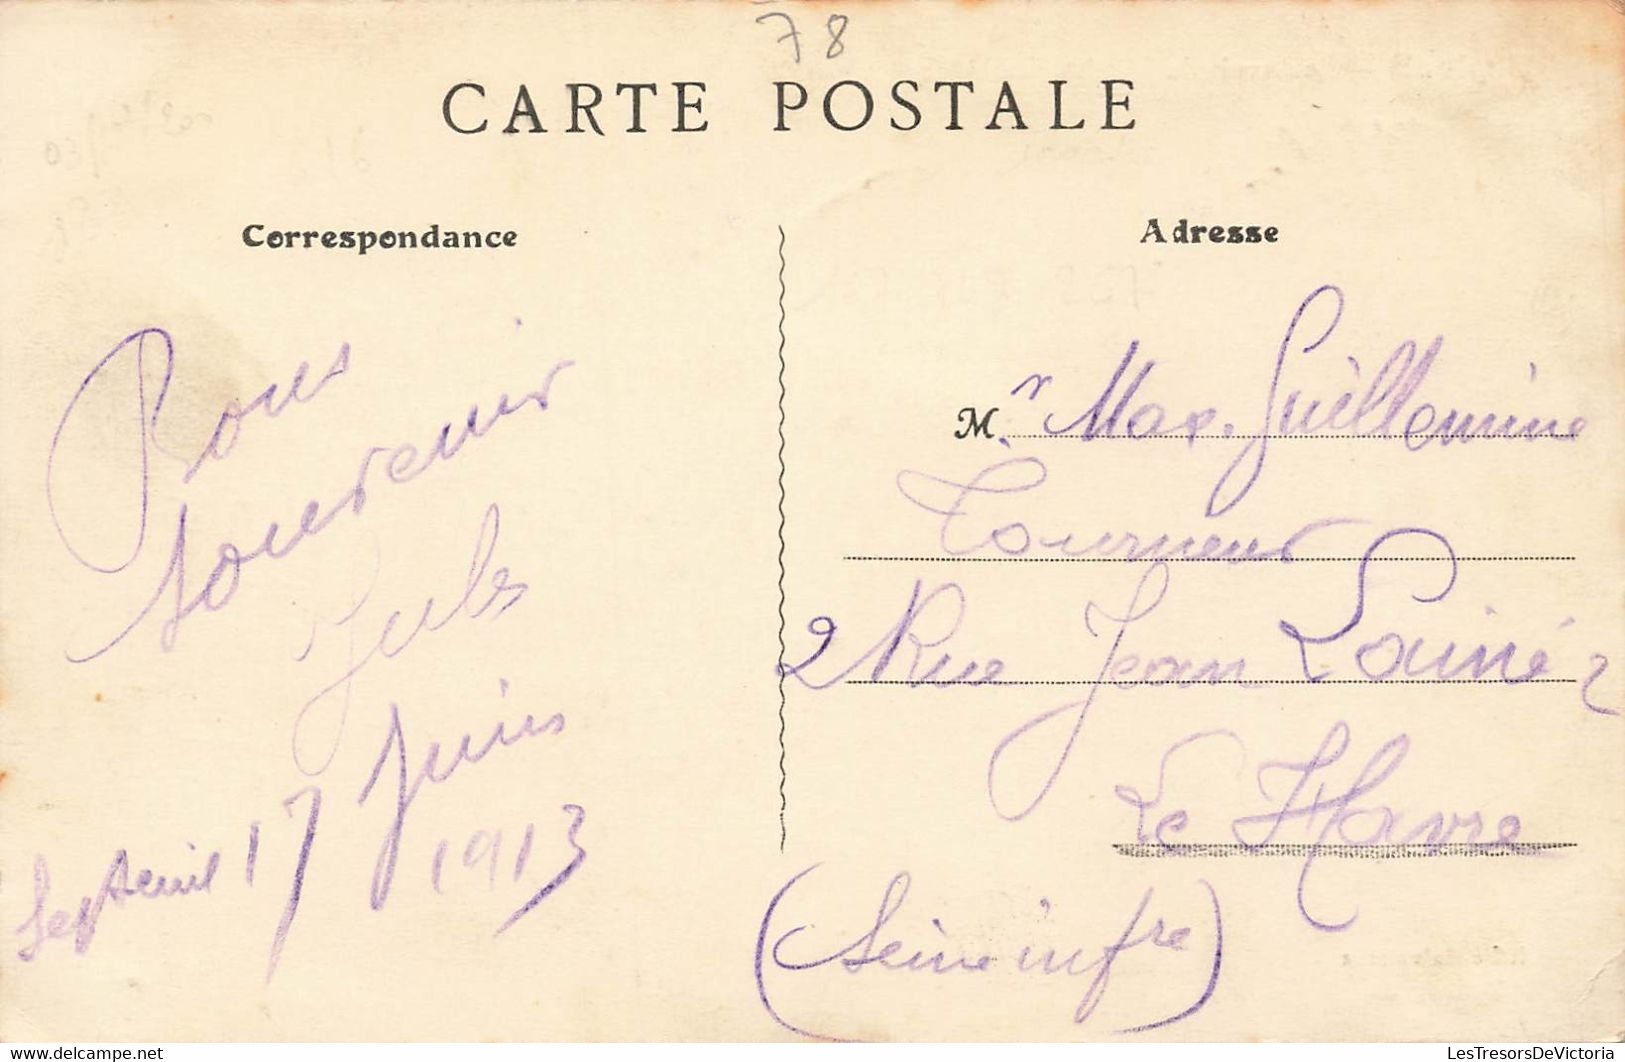 78
CARTE POSTALE
Correspondance
Bons
souvenir
Jules
Septeuil 17 Juin
1913
Adresse
M.r Max. Guillemine
Tourneur
2 Rue Jean Lainé 2
Le Havre
(Seine infre)
delcampe.net
LesTresorsDeVictoria